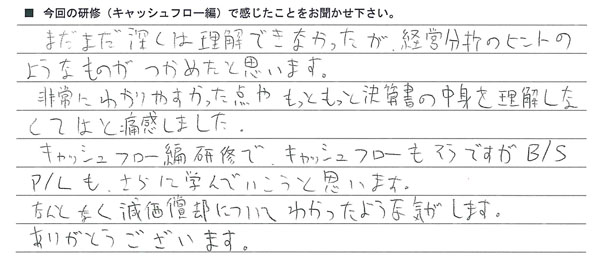 ■ 今回の研修（キャッシュフロー編）で感じたことをお聞かせ下さい。
まだまだ深くは理解できなかったが、経営分析のヒントの
ようなものがつかめたと思います。
非常にわかりやすかった点や もっともっと決算書の中身を理解しな
くてはと痛感しました.
キャッシュフロー編研修で、キャッシュフローもそうですがB/S
P/Lも、さらに学んでいこうと思います。
なんとなく減価償却についてわかったような気がします。
ありがとうございます。